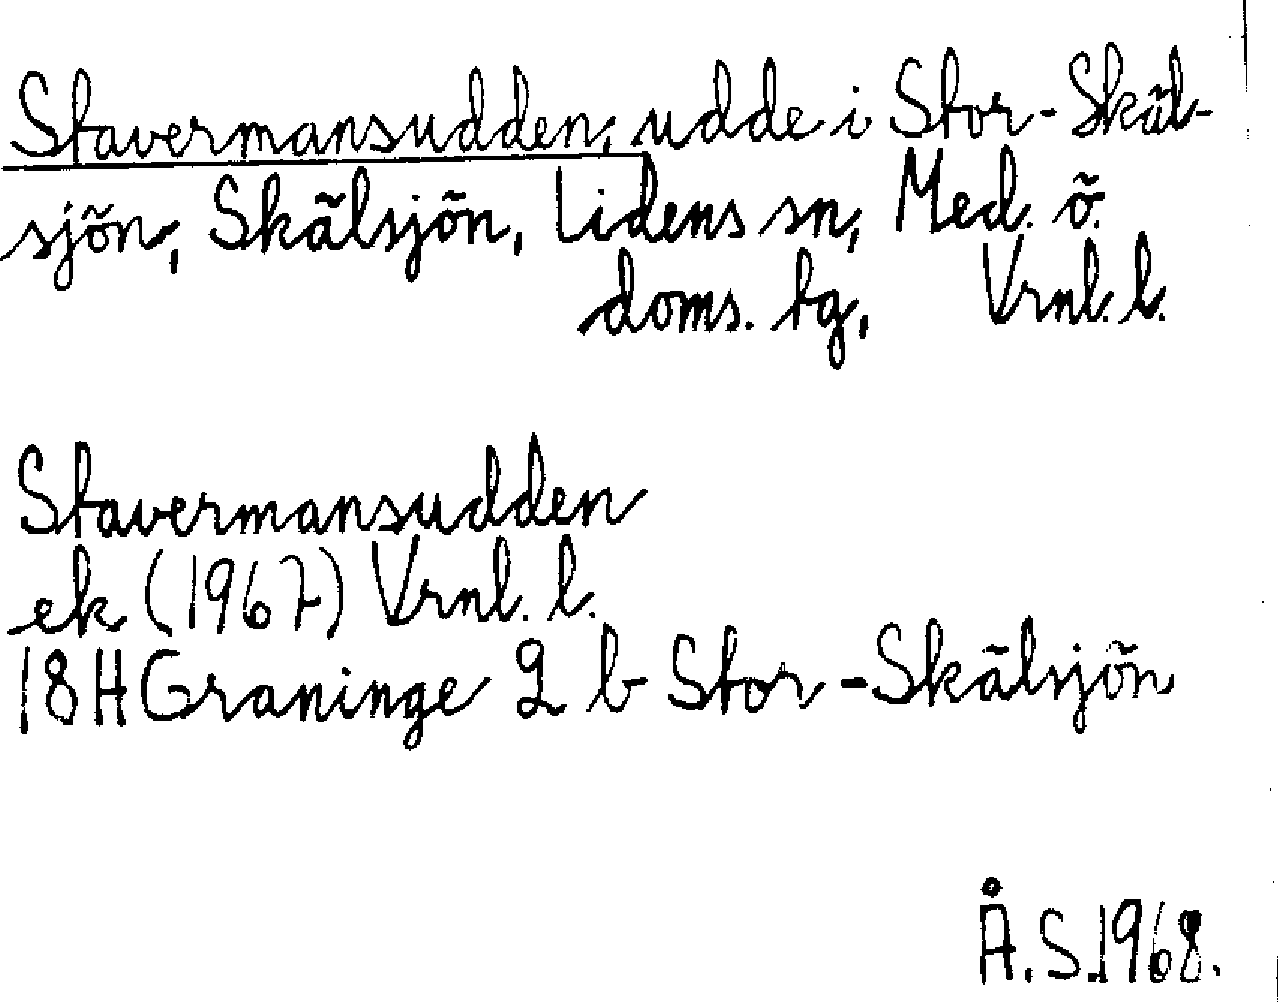 Stavermansudden, udde i Stor-Skäl-
sjön, Skälsjön, Lidens sn, Med. ö.
doms. tg, Vrnl. l.
Stavermansudden
ek (1967) Vrnl. l.
18H Graninge 2 b Stor-Skälsjön
Å.S.1968.